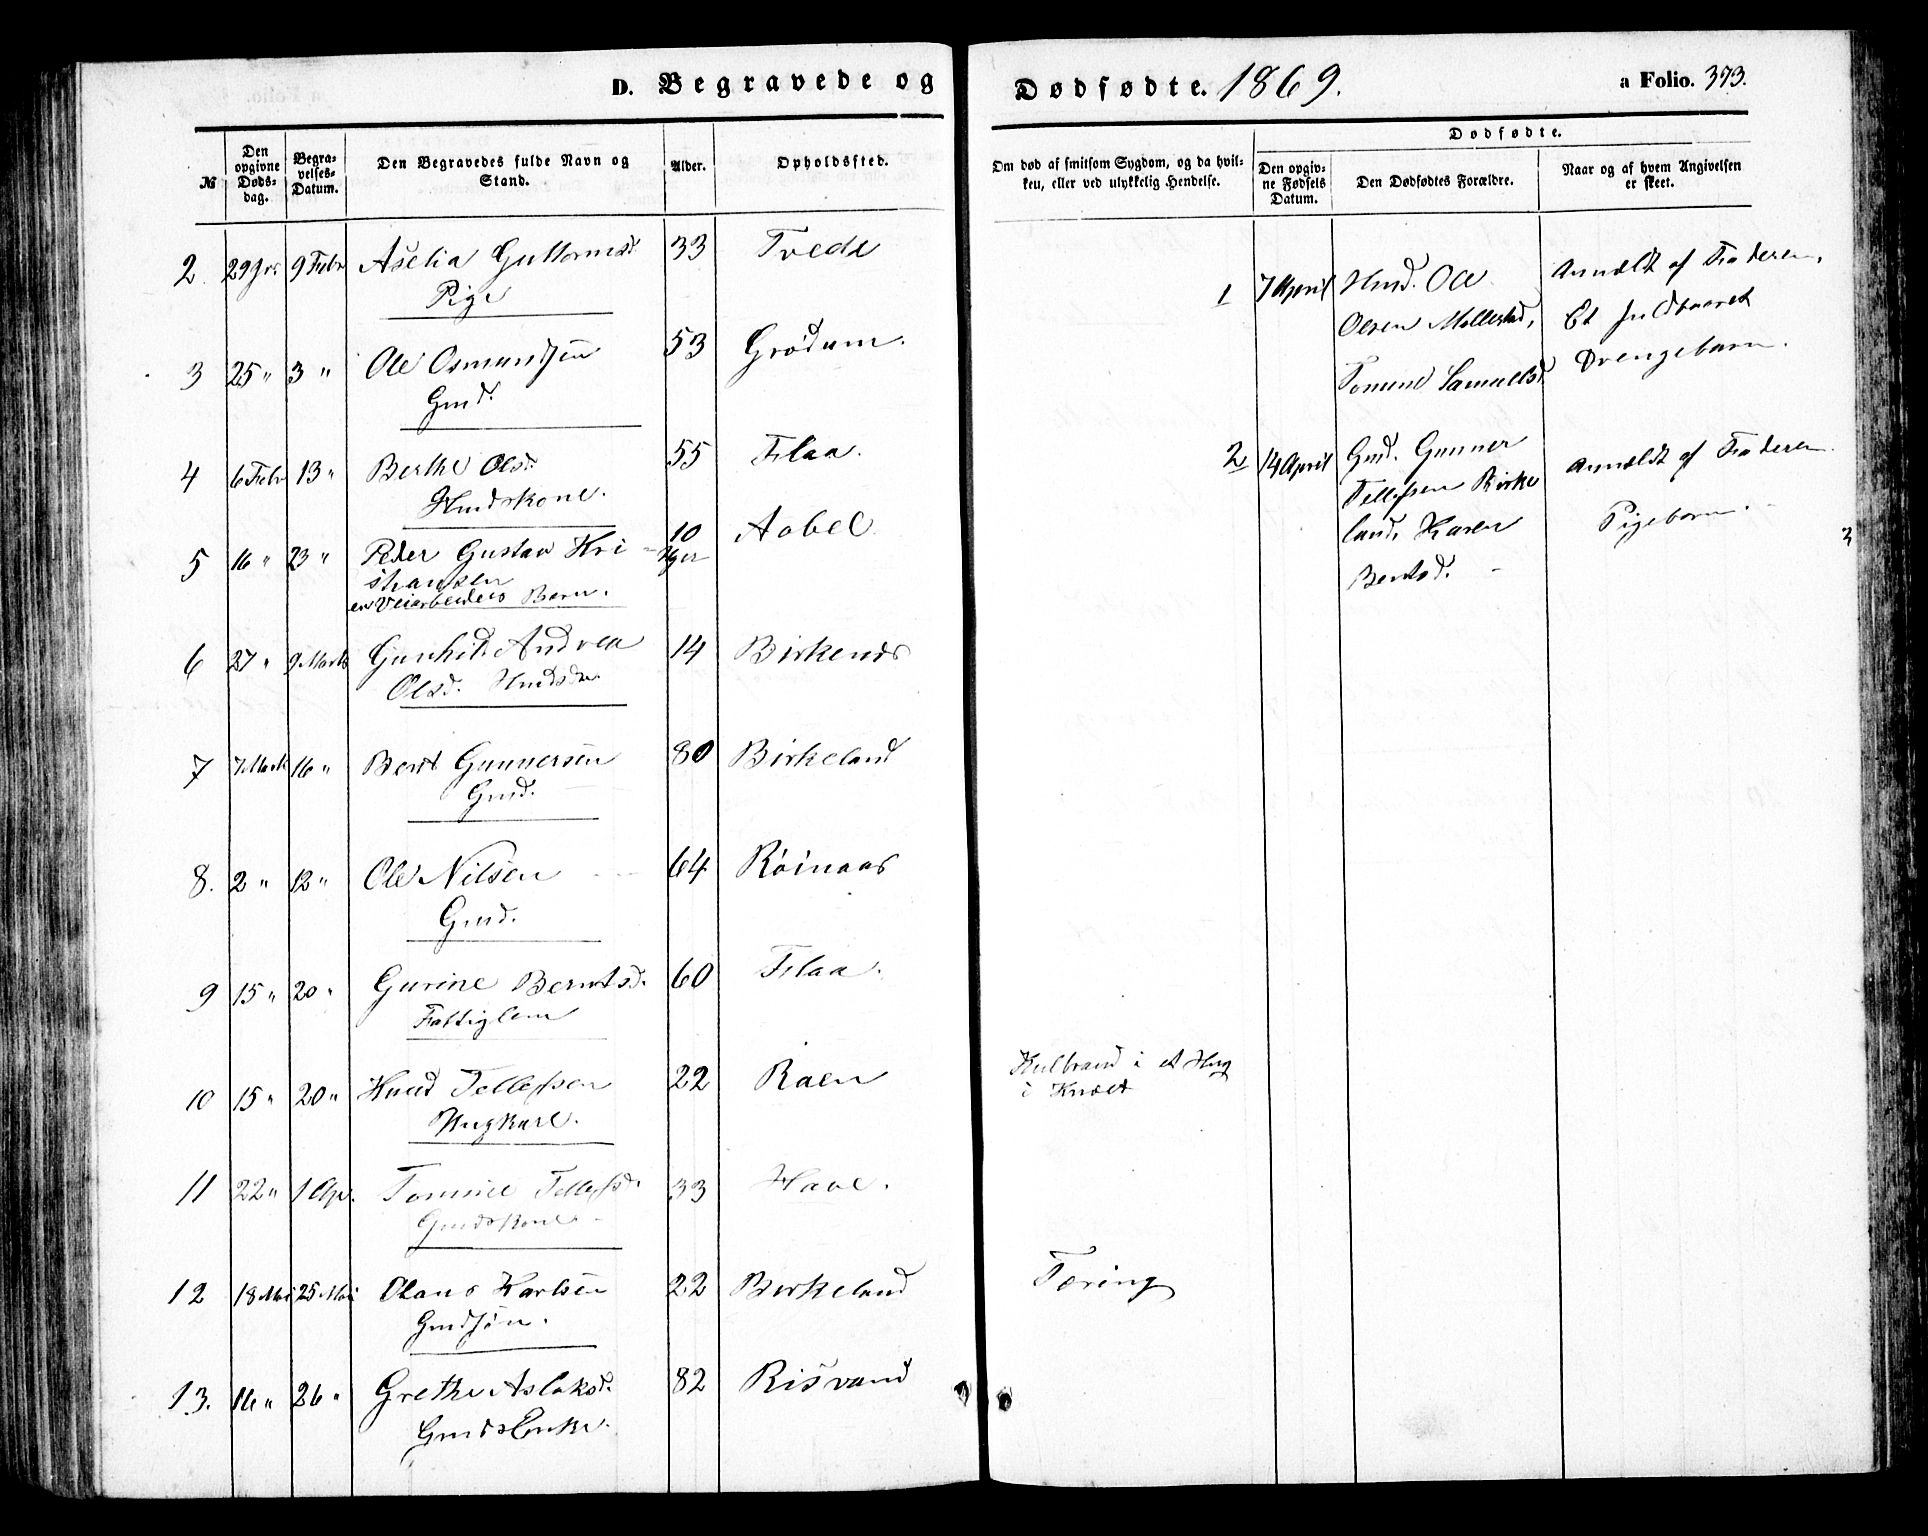 D. Begravede og
Dødfødte. 1869.
a Folio. 373.
№
Den opgivne Døds-dag.
Begra-velses-Datum.
Den Begravedes fulde Navn og Stand.
Alder.
Opholdssted.
Om død af smitsom Sygdom, og da hvil-ken, eller ved ulykkelig Hendelse.
Dødfødte.
Den opgiv-ne Fødsels Datum.
Den Dødfødtes Forældre.
Naar og af hvem Angivelsen er skeet.
2. 29 9 Febr Aselia Guttormsd. 33 Tvede
Pige
3 25 " 3 " Ole Osmundsen 53 Grødum.
Gmd.
4 6 Febr 13 " Berthe Olsd. 55 Flaa.
Hmdskone.
5 16 " 23 " Peder Gustav Kri- 10 Aabel
stiansen
en Veiarbeiders Barn.
6 27 " 9 Marts Gunhild Andrea 14 Birkenes
Olsd. Hmdsdr.
7 7 Marts 16 " Bernt Gunnersen 80 Birkeland
Gmd.
8. 2 " 12 " Ole Nilsen 64 Røinaas
Gmd.
9 15 " 20 " Gurine Berntsd. 60 Flaa.
Fattiglem
10 15 " 20 " Knud Tellefsen 22 Raen
Ungkarl.
Kulbrand i et
i Knæet
11 22 " 1 Apr. Tomine Tellefsd. 33 Have.
Gmdskone
12 18 Mai 25 Mai Olaus Karlsen 22 Birkeland
Gmdsøn.
Tæring
13. 16 " 26 " Grethe Aslaksd. 82 Risvand
Gmds Enke.
1 7 April Hmd. Ole
Olsen Mollestad,
Tomine Samuelsd.
Anmeldt af Faderen.
Et fuldbaaret
Drengebarn.
2 14 April Gmd. Gunner
Tellefsen Birke
land, Karen
Berntsd.
Anmeldt af Faderen
Pigebarn.